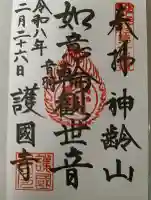 奉拝
神齢山
如意輪観世音
護國寺
令和八年
二月二十六日